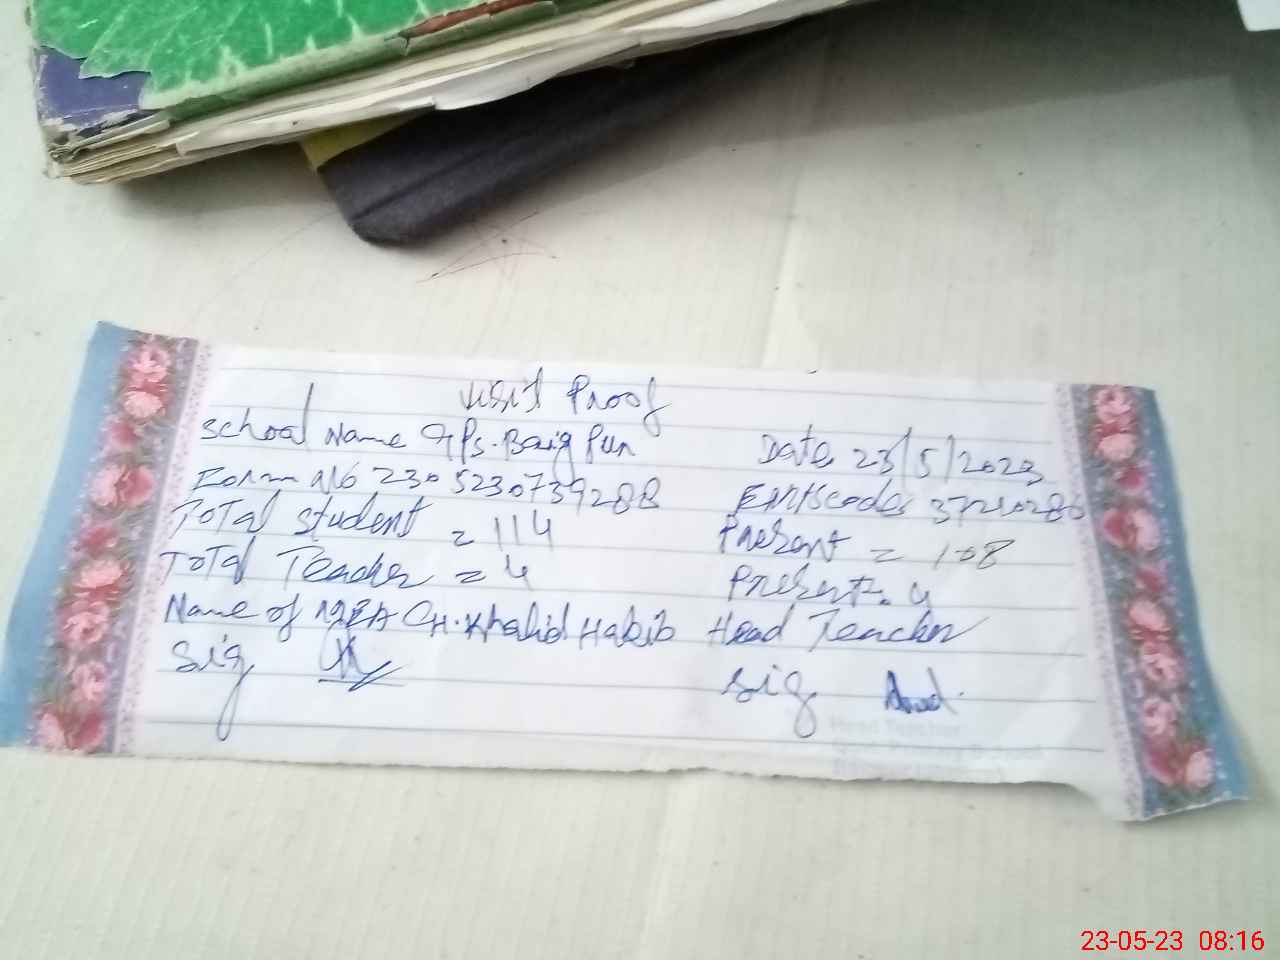 Visit Proof
School Name GPS. Baig Pur Date 23/5/2023
Form No 230523073928B Emiscode 37210286
Total Student = 114 Present = 108
Total Teacher = 4 Present = 4
Name of MEA CH. Khalid Habib Head Teacher
Sig Sig
Head Teacher
23-05-23 08:16